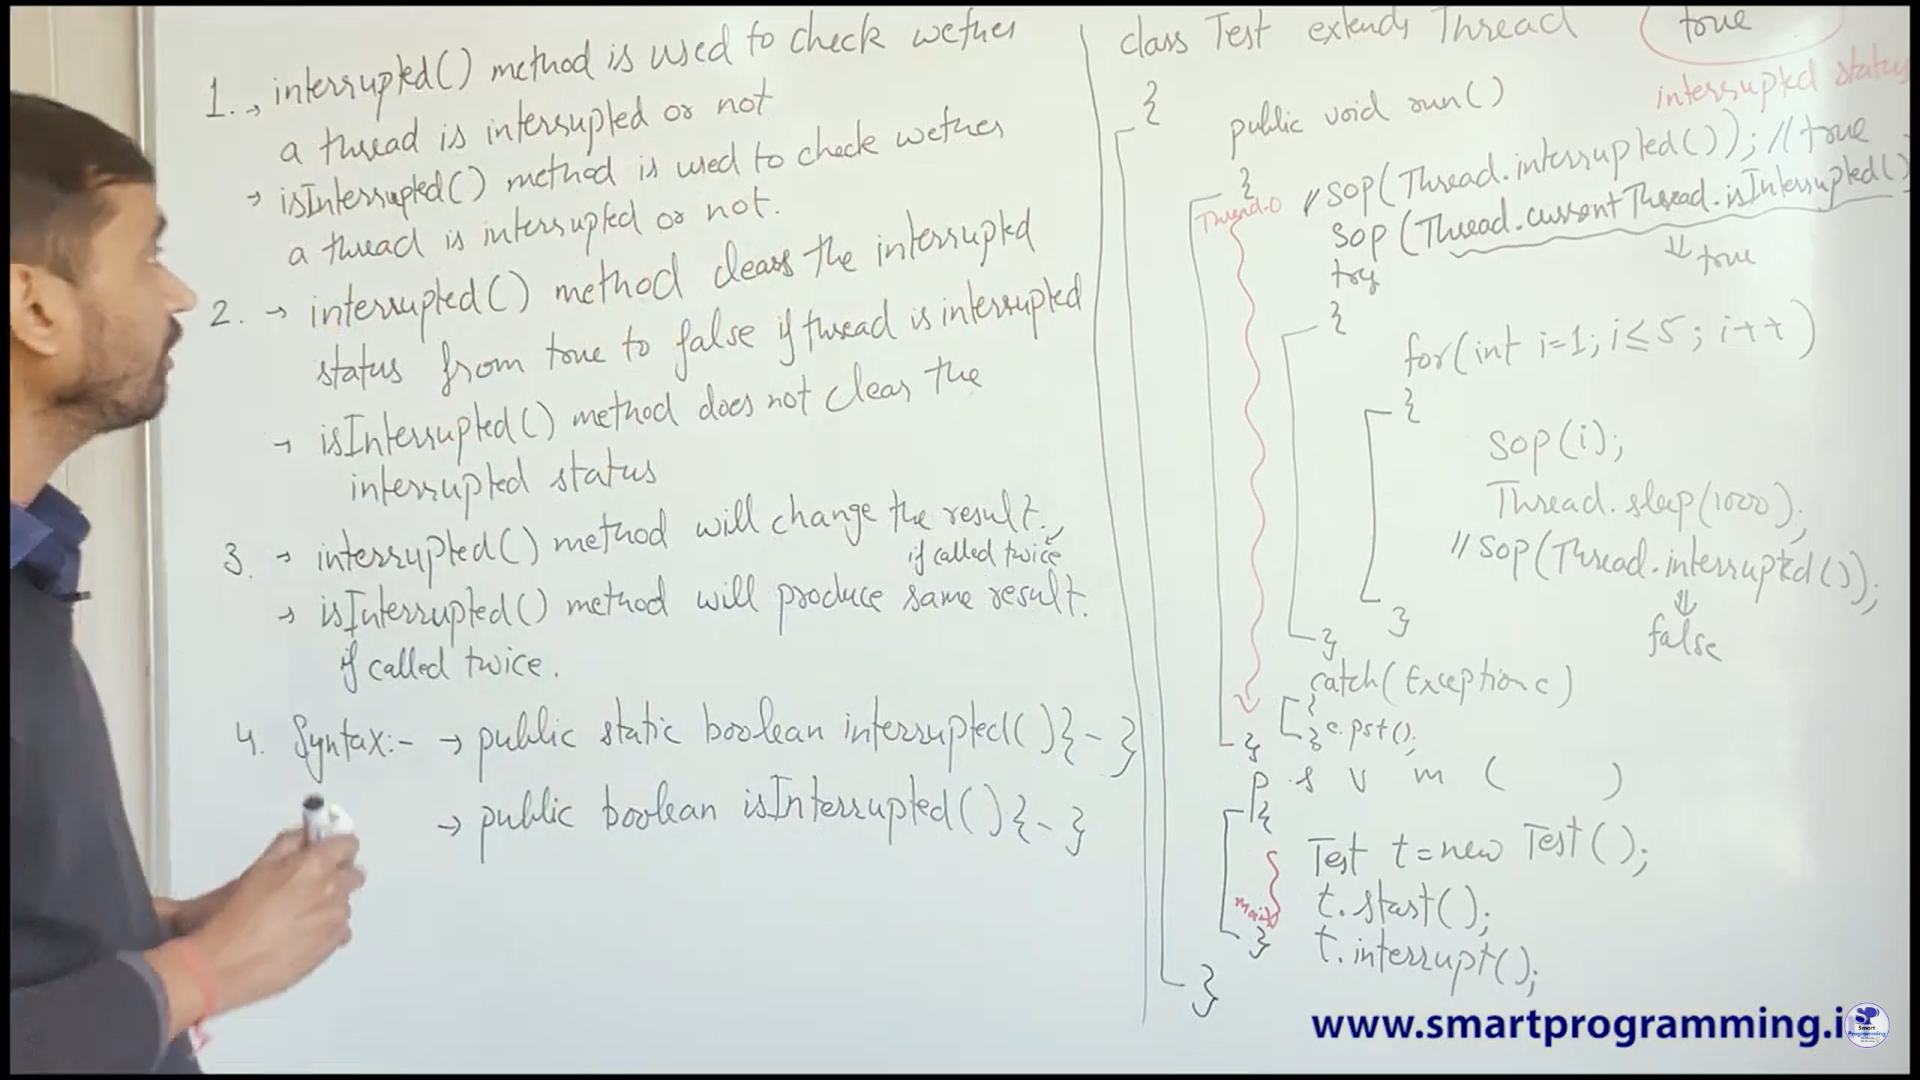 1. → interrupted() method is used to check wether
a thread is interrupted or not
→ isInterrupted() method is used to check wether
a thread is interrupted or not.
2. → interrupted() method clears the interrupted
status from true to false if thread is interrupted
→ isInterrupted() method does not clear the
interrupted status
3. → interrupted() method will change the result.
if called twice
→ isInterrupted() method will produce same result.
if called twice.
4. Syntax:- → public static boolean interrupted(){-}
→ public boolean isInterrupted(){-}
class Test extends Thread
true
interrupted status
{
public void run()
{
Thread-0
// SOP(Thread.interrupted()); // true
SOP(Thread.currentThread.isInterrupted()
⇓ true
try
{
for(int i=1; i≤5; i++)
{
SOP(i);
Thread.sleep(1000);
// SOP(Thread.interrupted());
⇓
false
}
}
catch(Exception e)
{
} e.pst();
}
p s v m ( )
{
Test t=new Test();
main
t.start();
t.interrupt();
}
}
www.smartprogramming.i
SP
Smart
Programming